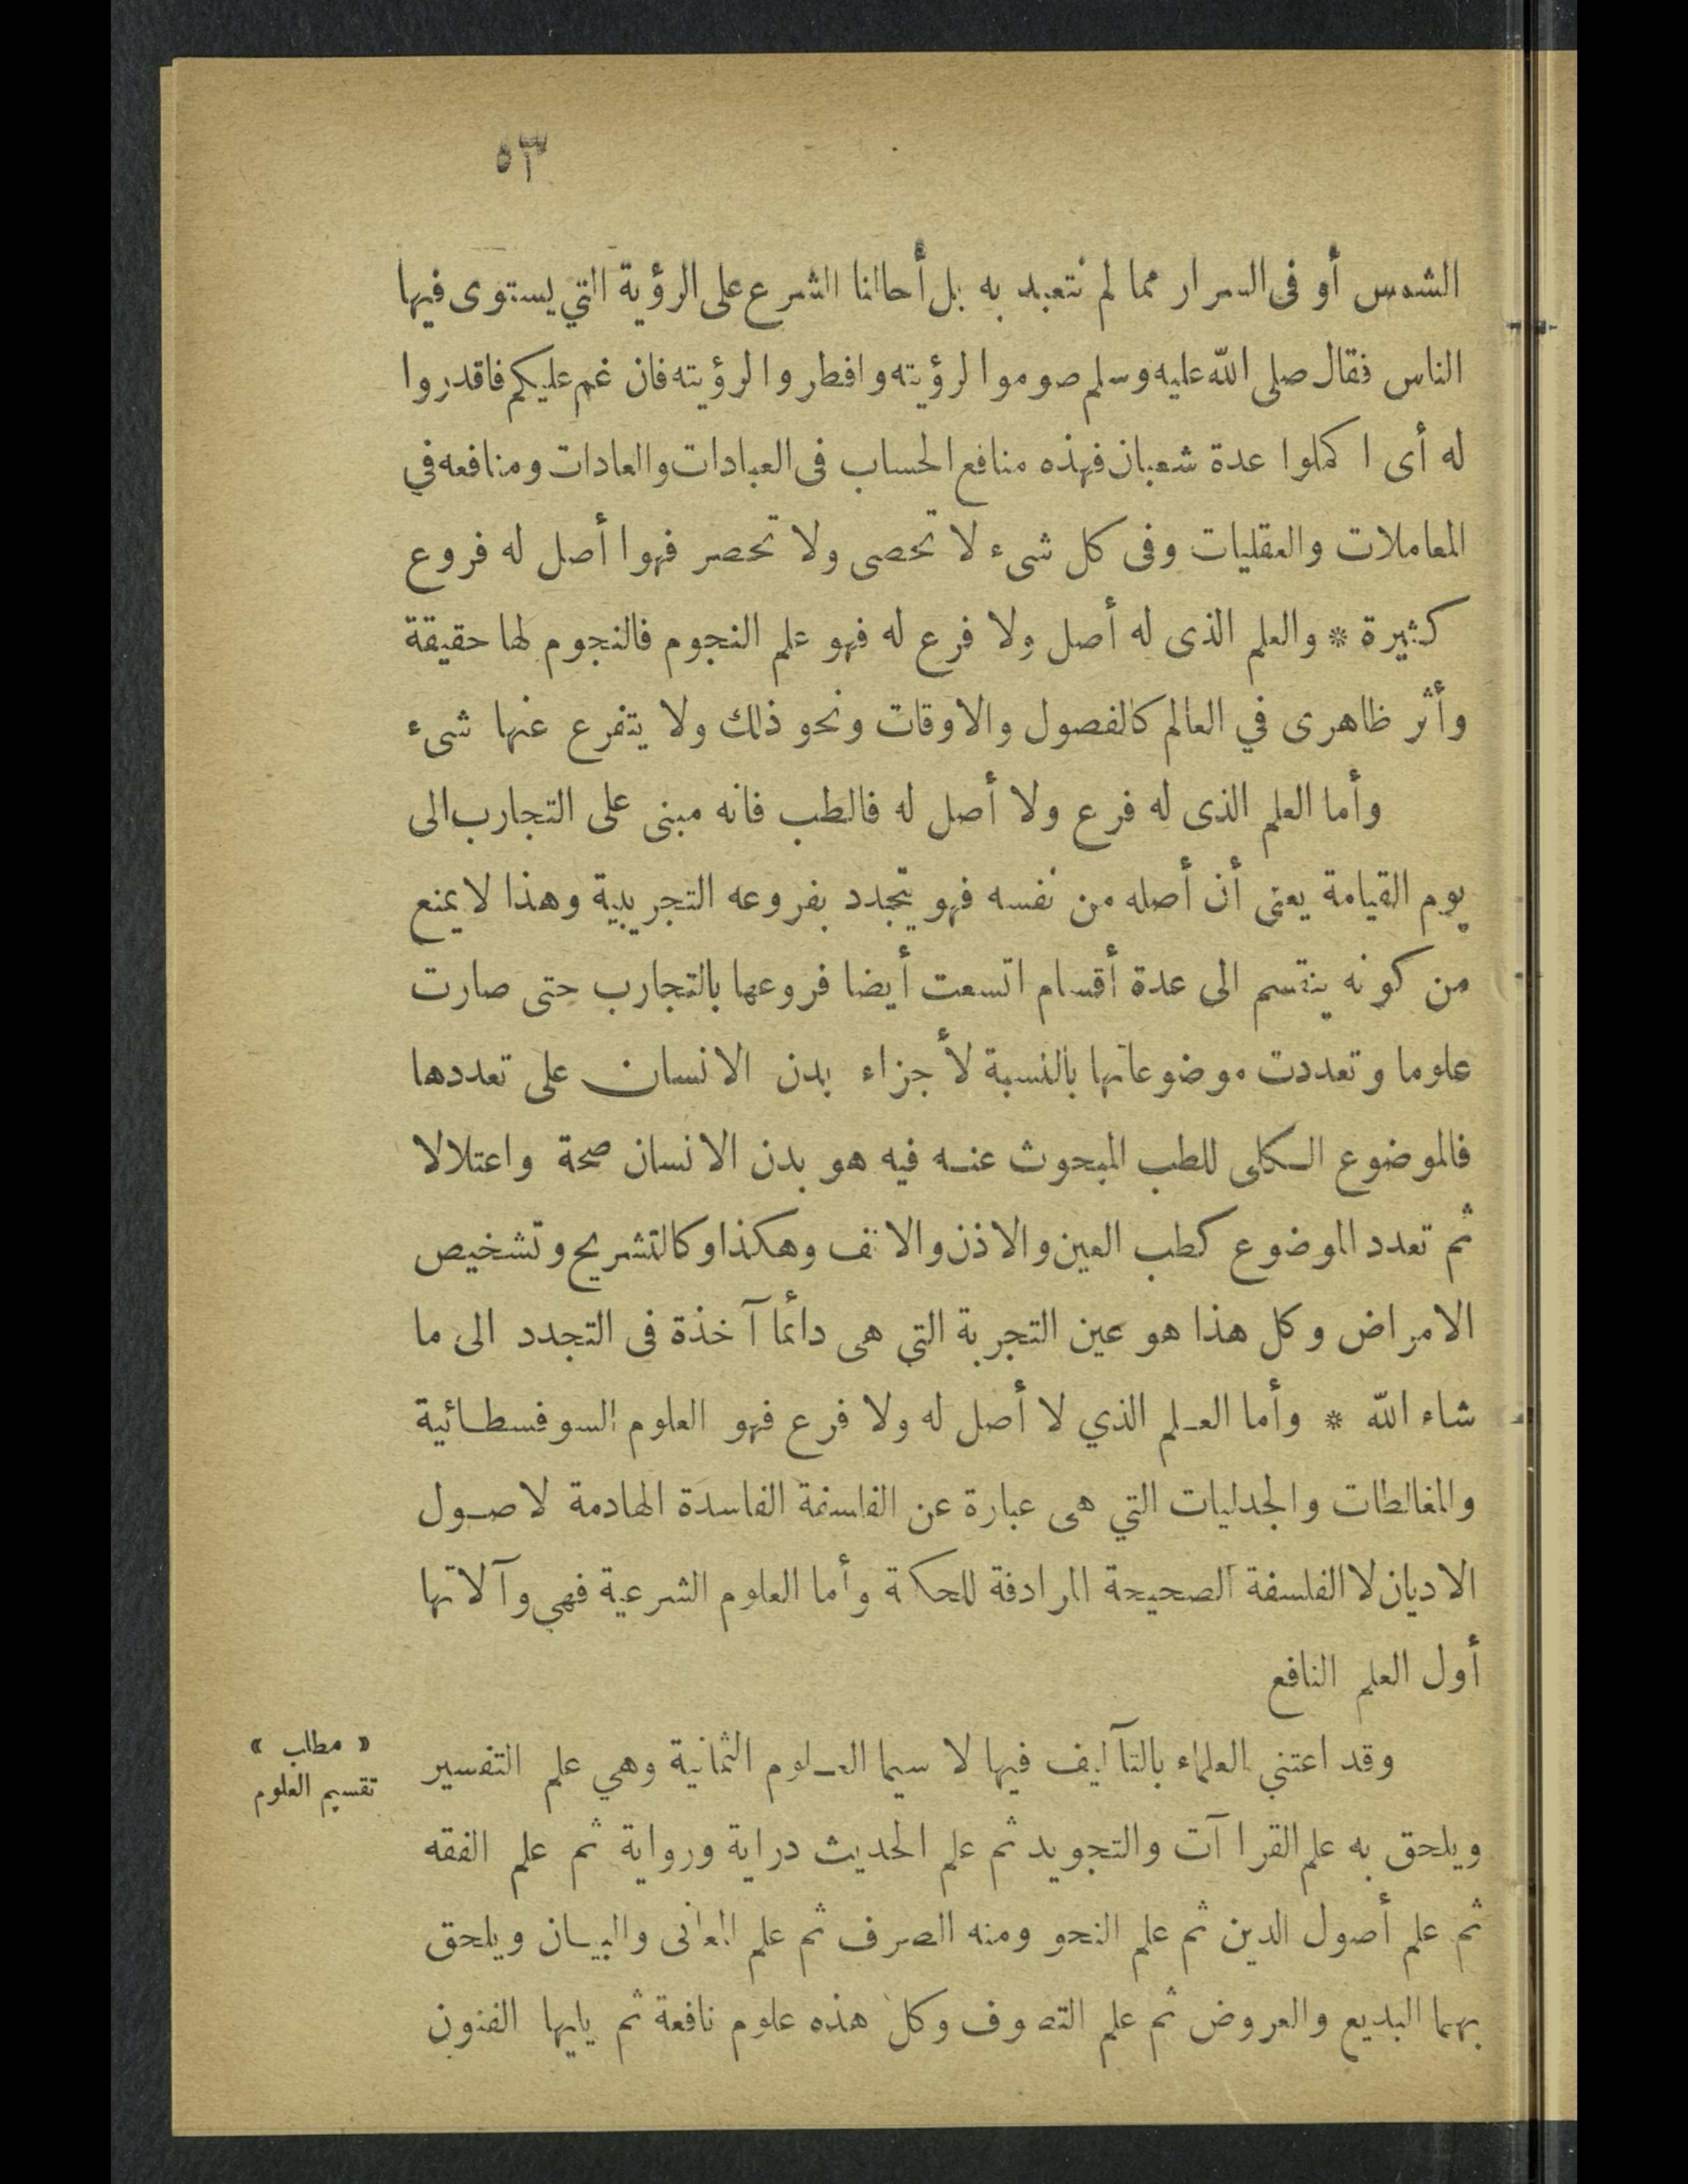 ٥٣
الشمس أو فى السرار مما لم نتعبد به بل أحالنا الشرع على الرؤية التي يستوى فيها
الناس فقال صلى الله عليه وسلم صوموا لرؤيته وافطروا لرؤيته فان غم عليكم فاقدروا
له أى اكملوا عدة شعبان فهذه منافع الحساب فى العبادات والعادات ومنافعه في
المعاملات والعقليات وفى كل شىء لا تحصى ولا تحصر فهوا أصل له فروع
كثيرة * والعلم الذى له أصل ولا فرع له فهو علم النجوم فالنجوم لها حقيقة
وأثر ظاهرى في العالم كالفصول والاوقات ونحو ذلك ولا يتفرع عنها شىء
وأما العلم الذى له فرع ولا أصل له فالطب فانه مبنى على التجارب الى
يوم القيامة يعنى أن أصله من نفسه فهو يتجدد بفروعه التجريبية وهذا لا يمنع
من كونه ينقسم الى عدة أقسام اتسعت أيضا فروعها بالتجارب حتى صارت
علوما وتعددت موضوعاتها بالنسبة لأجزاء بدن الانسان على تعددها
فالموضوع الكلى للطب المبحوث عنه فيه هو بدن الانسان صحة واعتلالا
ثم تعدد الموضوع كطب العين والاذن والانف وهكذا وكالتشريح وتشخيص
الامراض وكل هذا هو عين التجربة التي هى دائما آخذة فى التجدد الى ما
شاء الله * وأما العلم الذي لا أصل له ولا فرع فهو العلوم السوفسطائية
والمغالطات والجدليات التي هى عبارة عن الفلسفة الفاسدة الهادمة لاصول
الاديان لا الفلسفة الصحيحة المرادفة للحكمة وأما العلوم الشرعية فهي وآلاتها
أول العلم النافع
وقد اعتني العلماء بالتآليف فيها لا سيما العلوم الثمانية وهي علم التفسير
« مطلب »
تقسيم العلوم
ويلحق به علم القراآت والتجويد ثم علم الحديث دراية ورواية ثم علم الفقه
ثم علم أصول الدين ثم علم النحو ومنه الصرف ثم علم المعانى والبيان ويلحق
بهما البديع والعروض ثم علم التصوف وكل هذه علوم نافعة ثم يليها الفنون